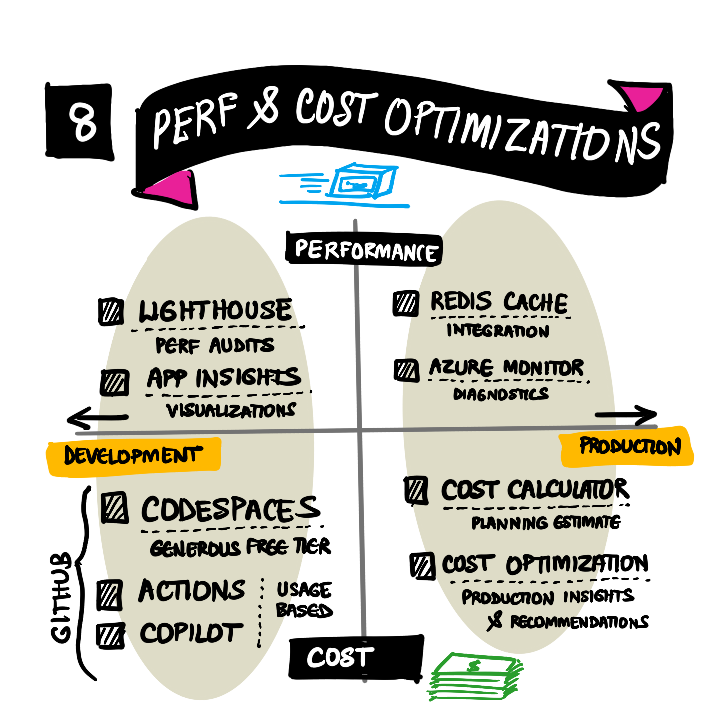 8
PERF & COST OPTIMIZATIONS
PERFORMANCE
LIGHTHOUSE
PERF AUDITS
APP INSIGHTS
VISUALIZATIONS
REDIS CACHE
INTEGRATION
AZURE MONITOR
DIAGNOSTICS
DEVELOPMENT
PRODUCTION
GITHUB
CODESPACES
GENEROUS FREE TIER
ACTIONS
COPILOT
USAGE
BASED
COST CALCULATOR
PLANNING ESTIMATE
COST OPTIMIZATION
PRODUCTION INSIGHTS
& RECOMMENDATIONS
COST
$